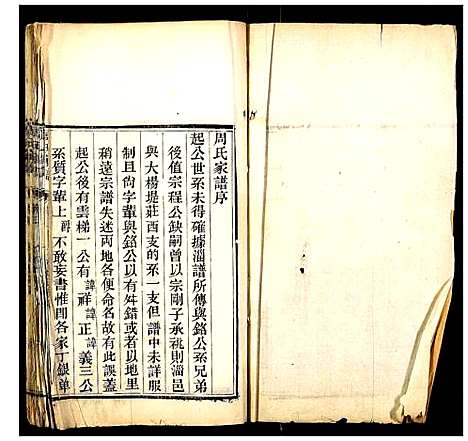 周氏家譜序
起公世系未得確據淄譜所傳與銘公系兄弟
後值宗程公缺嗣曾以宗剛子承祧則淄邑
與大楊堤莊西支的系一支但譜中未詳服
制且尚字輩與銘公以有舛錯或者以地里
稍遠宗譜失迷兩地各便命名故有此誤蓋
起公後有雲梯一公有諱祥諱正諱義三公
系質字輩上爵不敢妄書惟問各家丁銀单